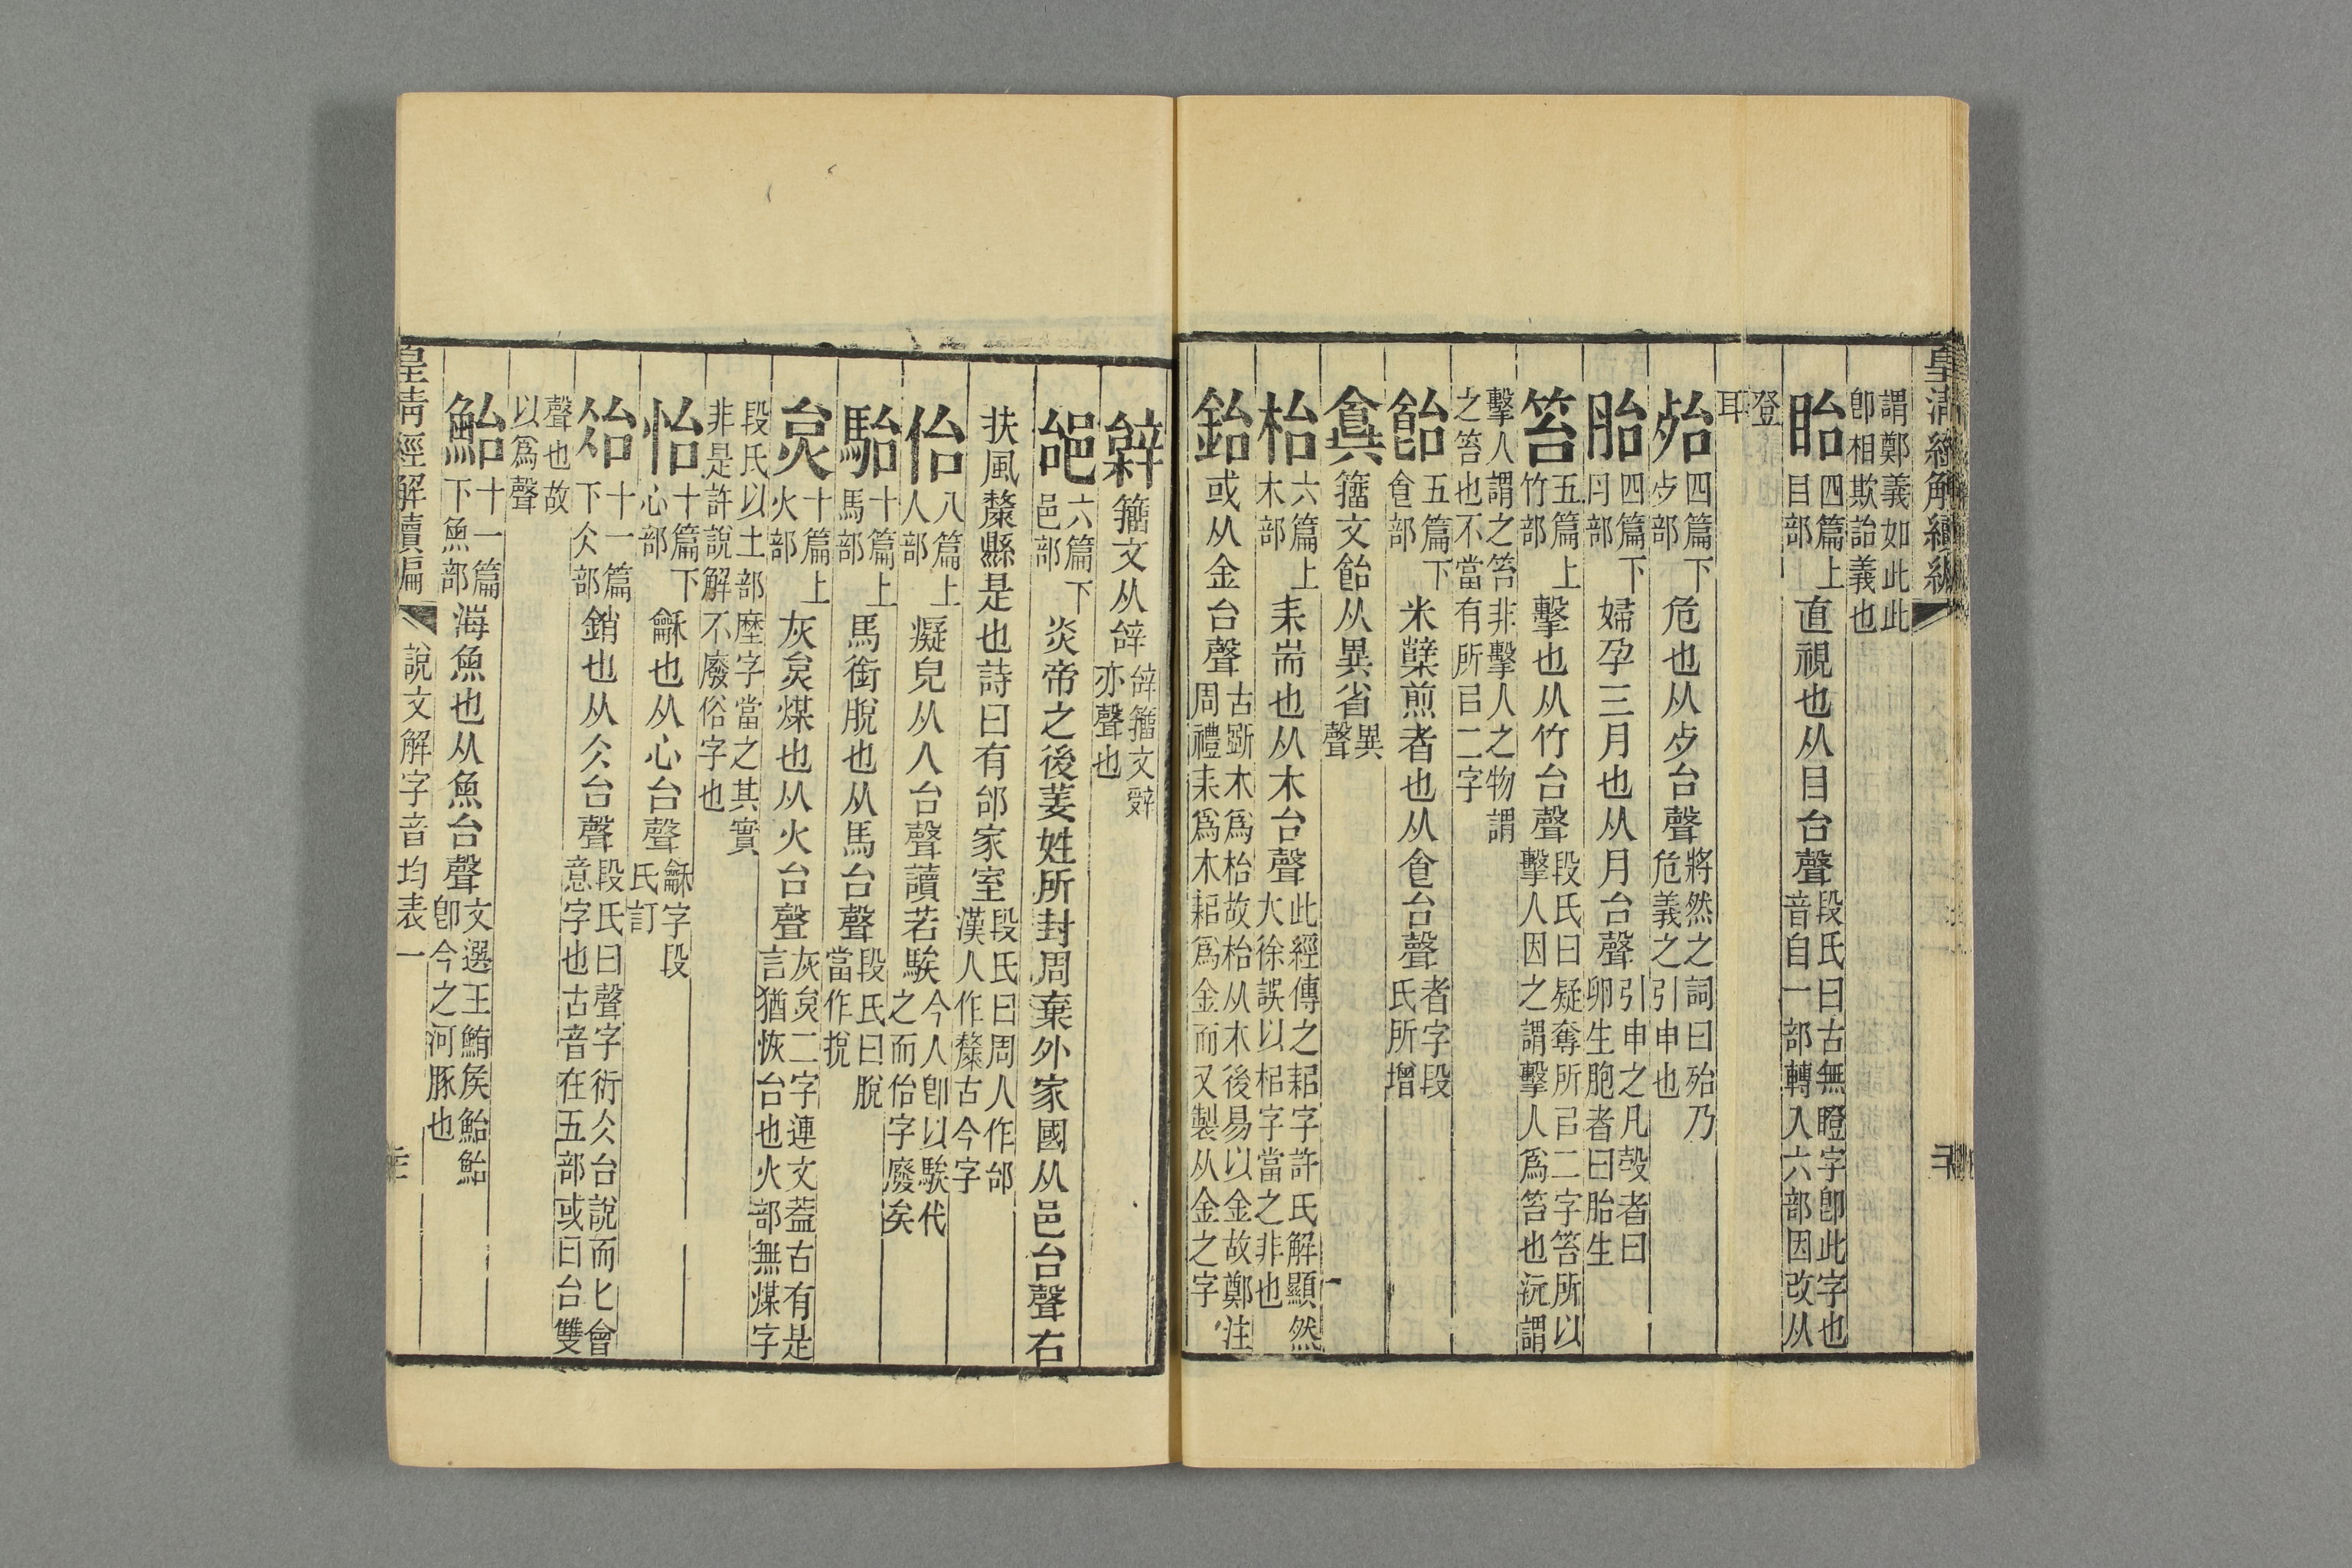 皇清經解續編
謂鄭義如此此
卽相欺詒義也
眙四篇上目部直視也从目台聲段氏曰古無瞪字卽此字也音自一部轉入六部因改从
登耳
殆四篇下歺部危也从歺台聲將然之詞曰殆乃危義之引申也
胎四篇下冃部婦孕三月也从月台聲引申之凡㱿者曰卵生胞者曰胎生
笞五篇上竹部擊也从竹台聲段氏曰疑奪所㠯二字笞所以擊人因之謂擊人爲笞也沅謂
擊人謂之笞非擊人之物謂之笞也不當有所㠯二字
飴五篇下食部米糱煎者也从食台聲者字段氏所增
籒文飴从異省異聲
枱六篇上木部耒耑也从木台聲此經傳之耜字許氏解顯然大徐誤以梠字當之非也
鈶或从金台聲古斲木爲枱故枱从木後易以金故鄭注周禮耒爲木耜爲金而又製从金之字
辝籒文从辝辝籒文辤亦聲也
邰六篇下邑部炎帝之後姜姓所封周棄外家國从邑台聲右
扶風斄縣是也詩曰有邰家室段氏曰周人作邰漢人作斄古今字
佁八篇上人部癡皃从人台聲讀若騃今人卽以騃代之而佁字廢矣
駘十篇上馬部馬銜脫也从馬台聲段氏曰脫當作挩
炱十篇上火部灰炱煤也从火台聲灰炱二字連文葢古有是言猶恢台也火部無煤字
段氏以土部塺字當之其實非是許說解不廢俗字也
怡十篇下心部龢也从心台聲龢字段氏訂
冶十一篇下仌部銷也从仌台聲段氏曰聲字衍仌台說而匕會意字也古音在五部或曰台雙
聲也故以爲聲
鮐十一篇下魚部海魚也从魚台聲文選王鮪矦鮐鮐卽今之河豚也
皇清經解續編
說文解字音均表一